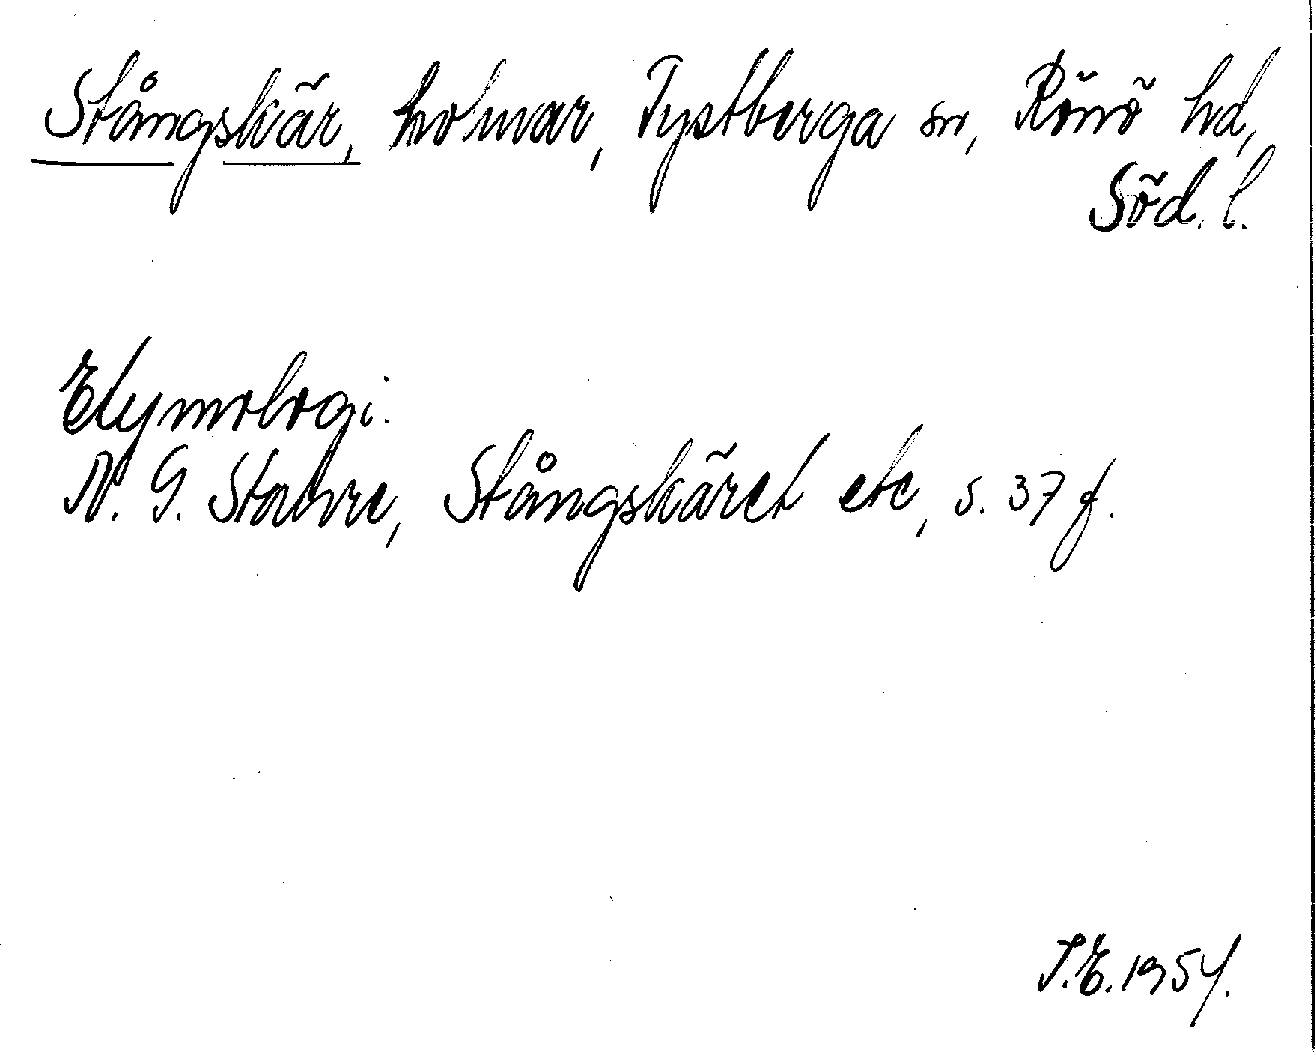 Stångskär, holmar, Tystberga sn, Rönö hd,
Söd. l.
Etymologi.
N. G. Stahre, Stångskäret etc, s. 37 f.
I.E. 1954.